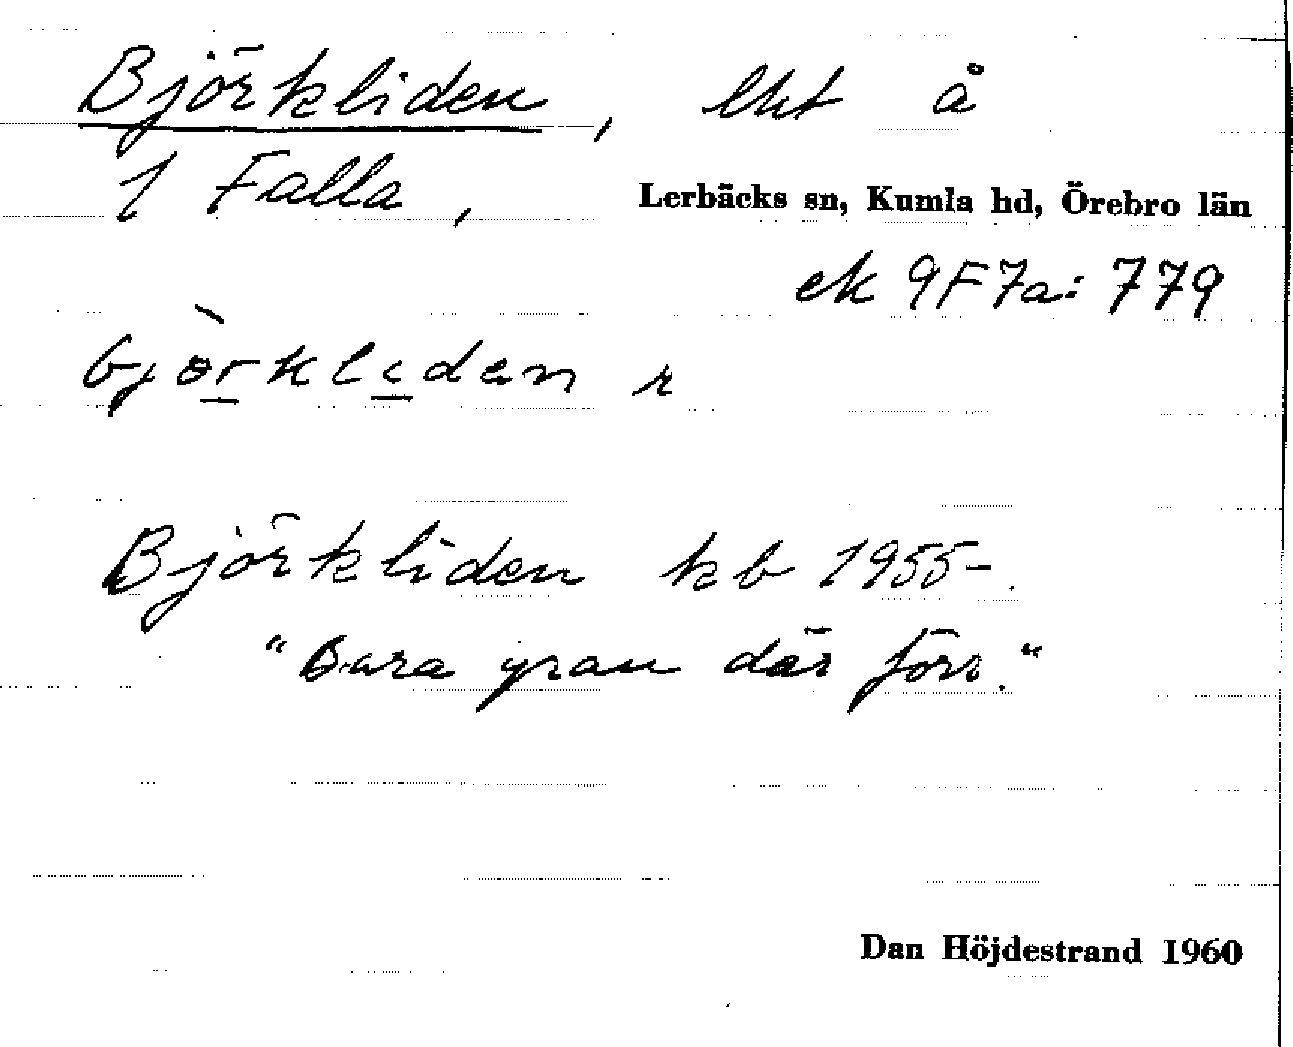 Björkliden, lht å
1 Falla,
Lerbäcks sn, Kumla hd, Örebro län
ek 9F7a: 779
bjòrklidan r
Björkliden kb 1955-.
"Bara gran där förr."
Dan Höjdestrand 1960